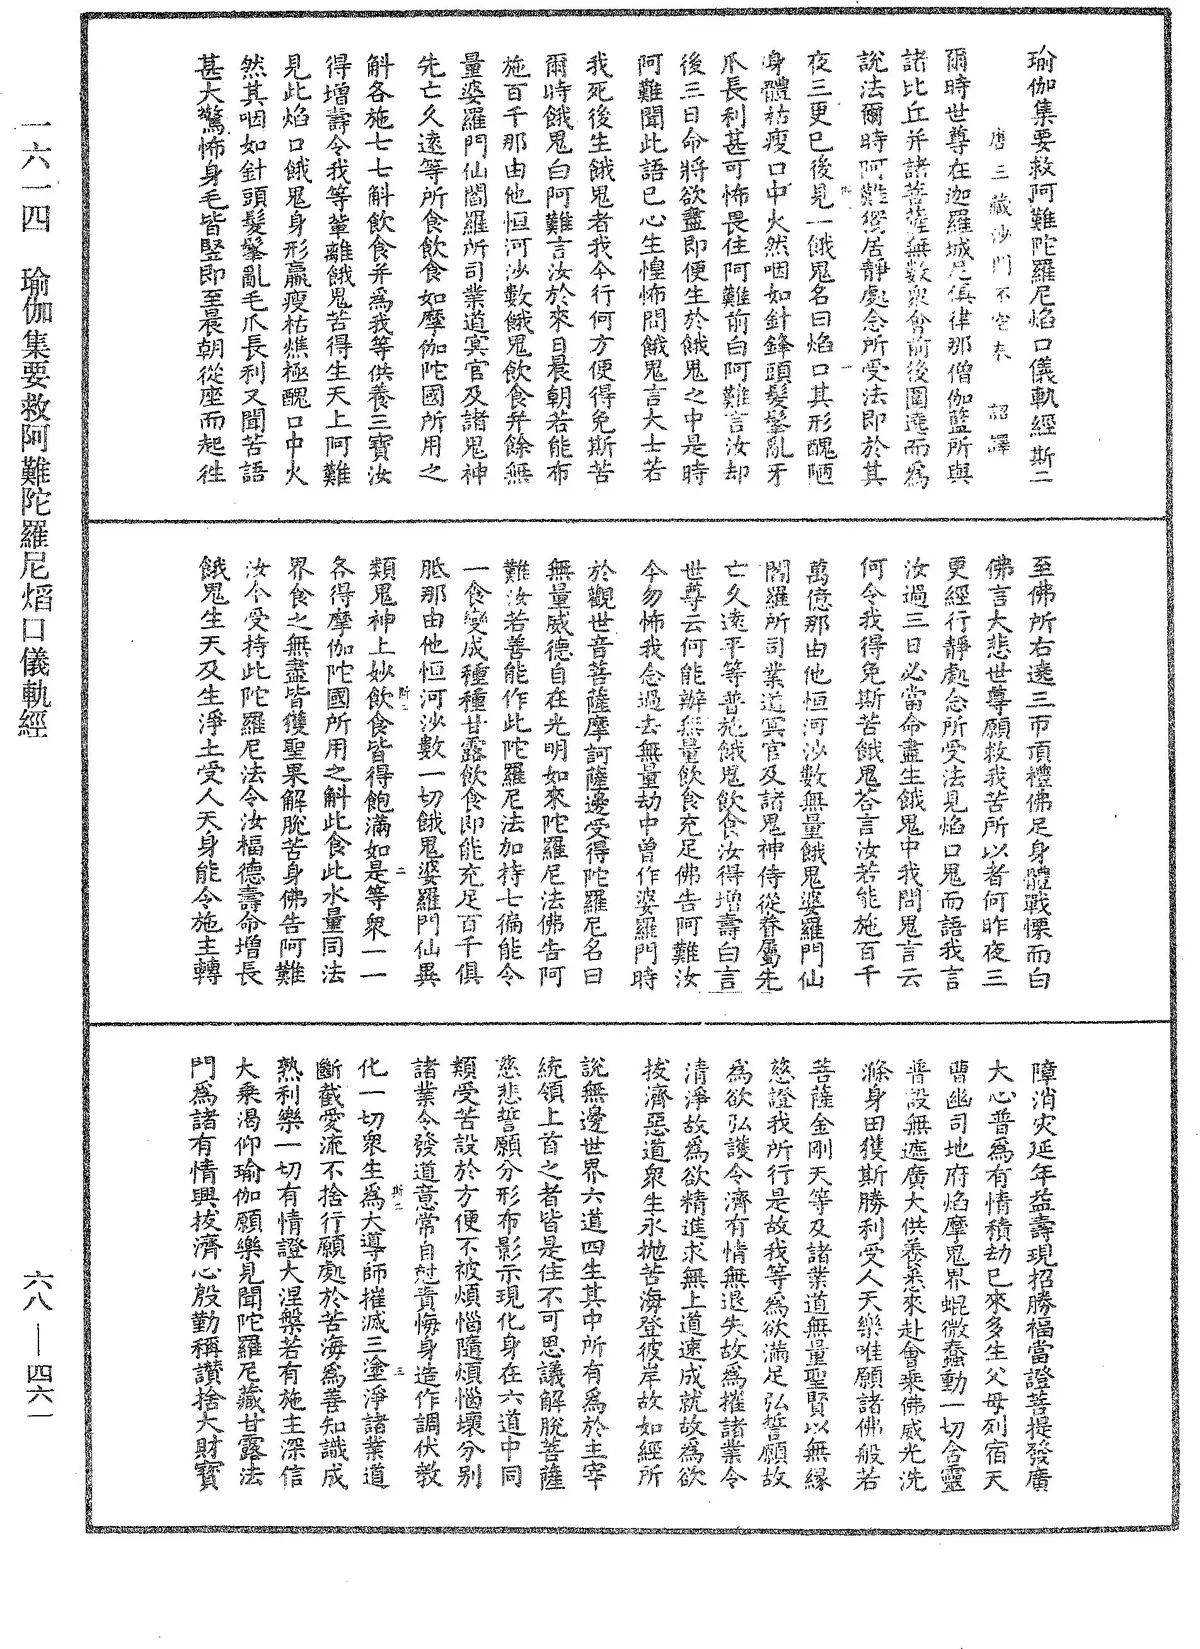 瑜伽集要救阿難陀羅尼焰口儀軌經 斯二
唐三藏沙門不空奉 詔譯
爾時世尊在迦羅城尼俱律那僧伽藍所與
諸比丘并諸菩薩無數眾會前後圍遶而為
說法爾時阿難獨居靜處念所受法即於其
夜三更已後見一餓鬼名曰焰口其形醜陋
身體枯瘦口中火然咽如針鋒頭髮髼亂牙
爪長利甚可怖畏住阿難前白阿難言汝却
後三日命將欲盡即便生於餓鬼之中是時
阿難聞此語已心生惶怖問餓鬼言大士若
我死後生餓鬼者我今行何方便得免斯苦
爾時餓鬼白阿難言汝於來日晨朝若能布
施百千那由他恒河沙數餓鬼飲食并餘無
量婆羅門仙閻羅所司業道冥官及諸鬼神
先亡久遠等所食飲食如摩伽陀國所用之
斛各施七七斛飲食并為我等供養三寶汝
得增壽令我等輩離餓鬼苦得生天上阿難
見此焰口餓鬼身形羸瘦枯燋極醜口中火
然其咽如針頭髮髼亂毛爪長利又聞苦語
甚大驚怖身毛皆豎即至晨朝從座而起往
至佛所右遶三帀頂禮佛足身體戰慄而白
佛言大悲世尊願救我苦所以者何昨夜三
更經行靜處念所受法見焰口鬼而語我言
汝過三日必當命盡生餓鬼中我問鬼言云
何令我得免斯苦餓鬼荅言汝若能施百千
萬億那由他恒河沙數無量餓鬼婆羅門仙
閻羅所司業道冥官及諸鬼神侍從眷屬先
亡久遠平等普施餓鬼飲食汝得增壽白言
世尊云何能辦無量飲食充足佛告阿難汝
今勿怖我念過去無量劫中曾作婆羅門時
於觀世音菩薩摩訶薩邊受得陀羅尼名曰
無量威德自在光明如來陀羅尼法佛告阿
難汝若善能作此陀羅尼法加持七徧能令
一食變成種種甘露飲食即能充足百千俱
胝那由他恒河沙數一切餓鬼婆羅門仙異
類鬼神上妙飲食皆得飽滿如是等眾一一
各得摩伽陀國所用之斛此食此水量同法
界食之無盡皆獲聖果解脫苦身佛告阿難
汝今受持此陀羅尼法令汝福德壽命增長
餓鬼生天及生淨土受人天身能令施主轉
障消灾延年益壽現招勝福當證菩提發廣
大心普為有情積劫已來多生父母列宿天
曹幽司地府焰摩鬼界蜫微蠢動一切含靈
普設無遮廣大供養悉來赴會乘佛威光洗
滌身田獲斯勝利受人天樂唯願諸佛般若
菩薩金剛天等及諸業道無量聖賢以無緣
慈證我所行是故我等為欲滿足弘誓願故
為欲弘護令濟有情無退失故為摧諸業令
清淨故為欲精進求無上道速成就故為欲
拔濟惡道眾生永拋苦海登彼岸故如經所
說無邊世界六道四生其中所有為於主宰
統領上首之者皆是住不可思議解脫菩薩
慈悲誓願分形布影示現化身在六道中同
類受苦設於方便不被煩惱隨煩惱壞分別
諸業令發道意常自尅責悔身造作調伏教
化一切眾生為大導師摧滅三塗淨諸業道
斷截愛流不捨行願處於苦海為善知識成
熟利樂一切有情證大涅槃若有施主深信
大乘渴仰瑜伽願樂見聞陀羅尼藏甘露法
門為諸有情興拔濟心殷勤稱讚捨大財寶
一六一四 瑜伽集要救阿難陀羅尼焰口儀軌經
六八—四六一